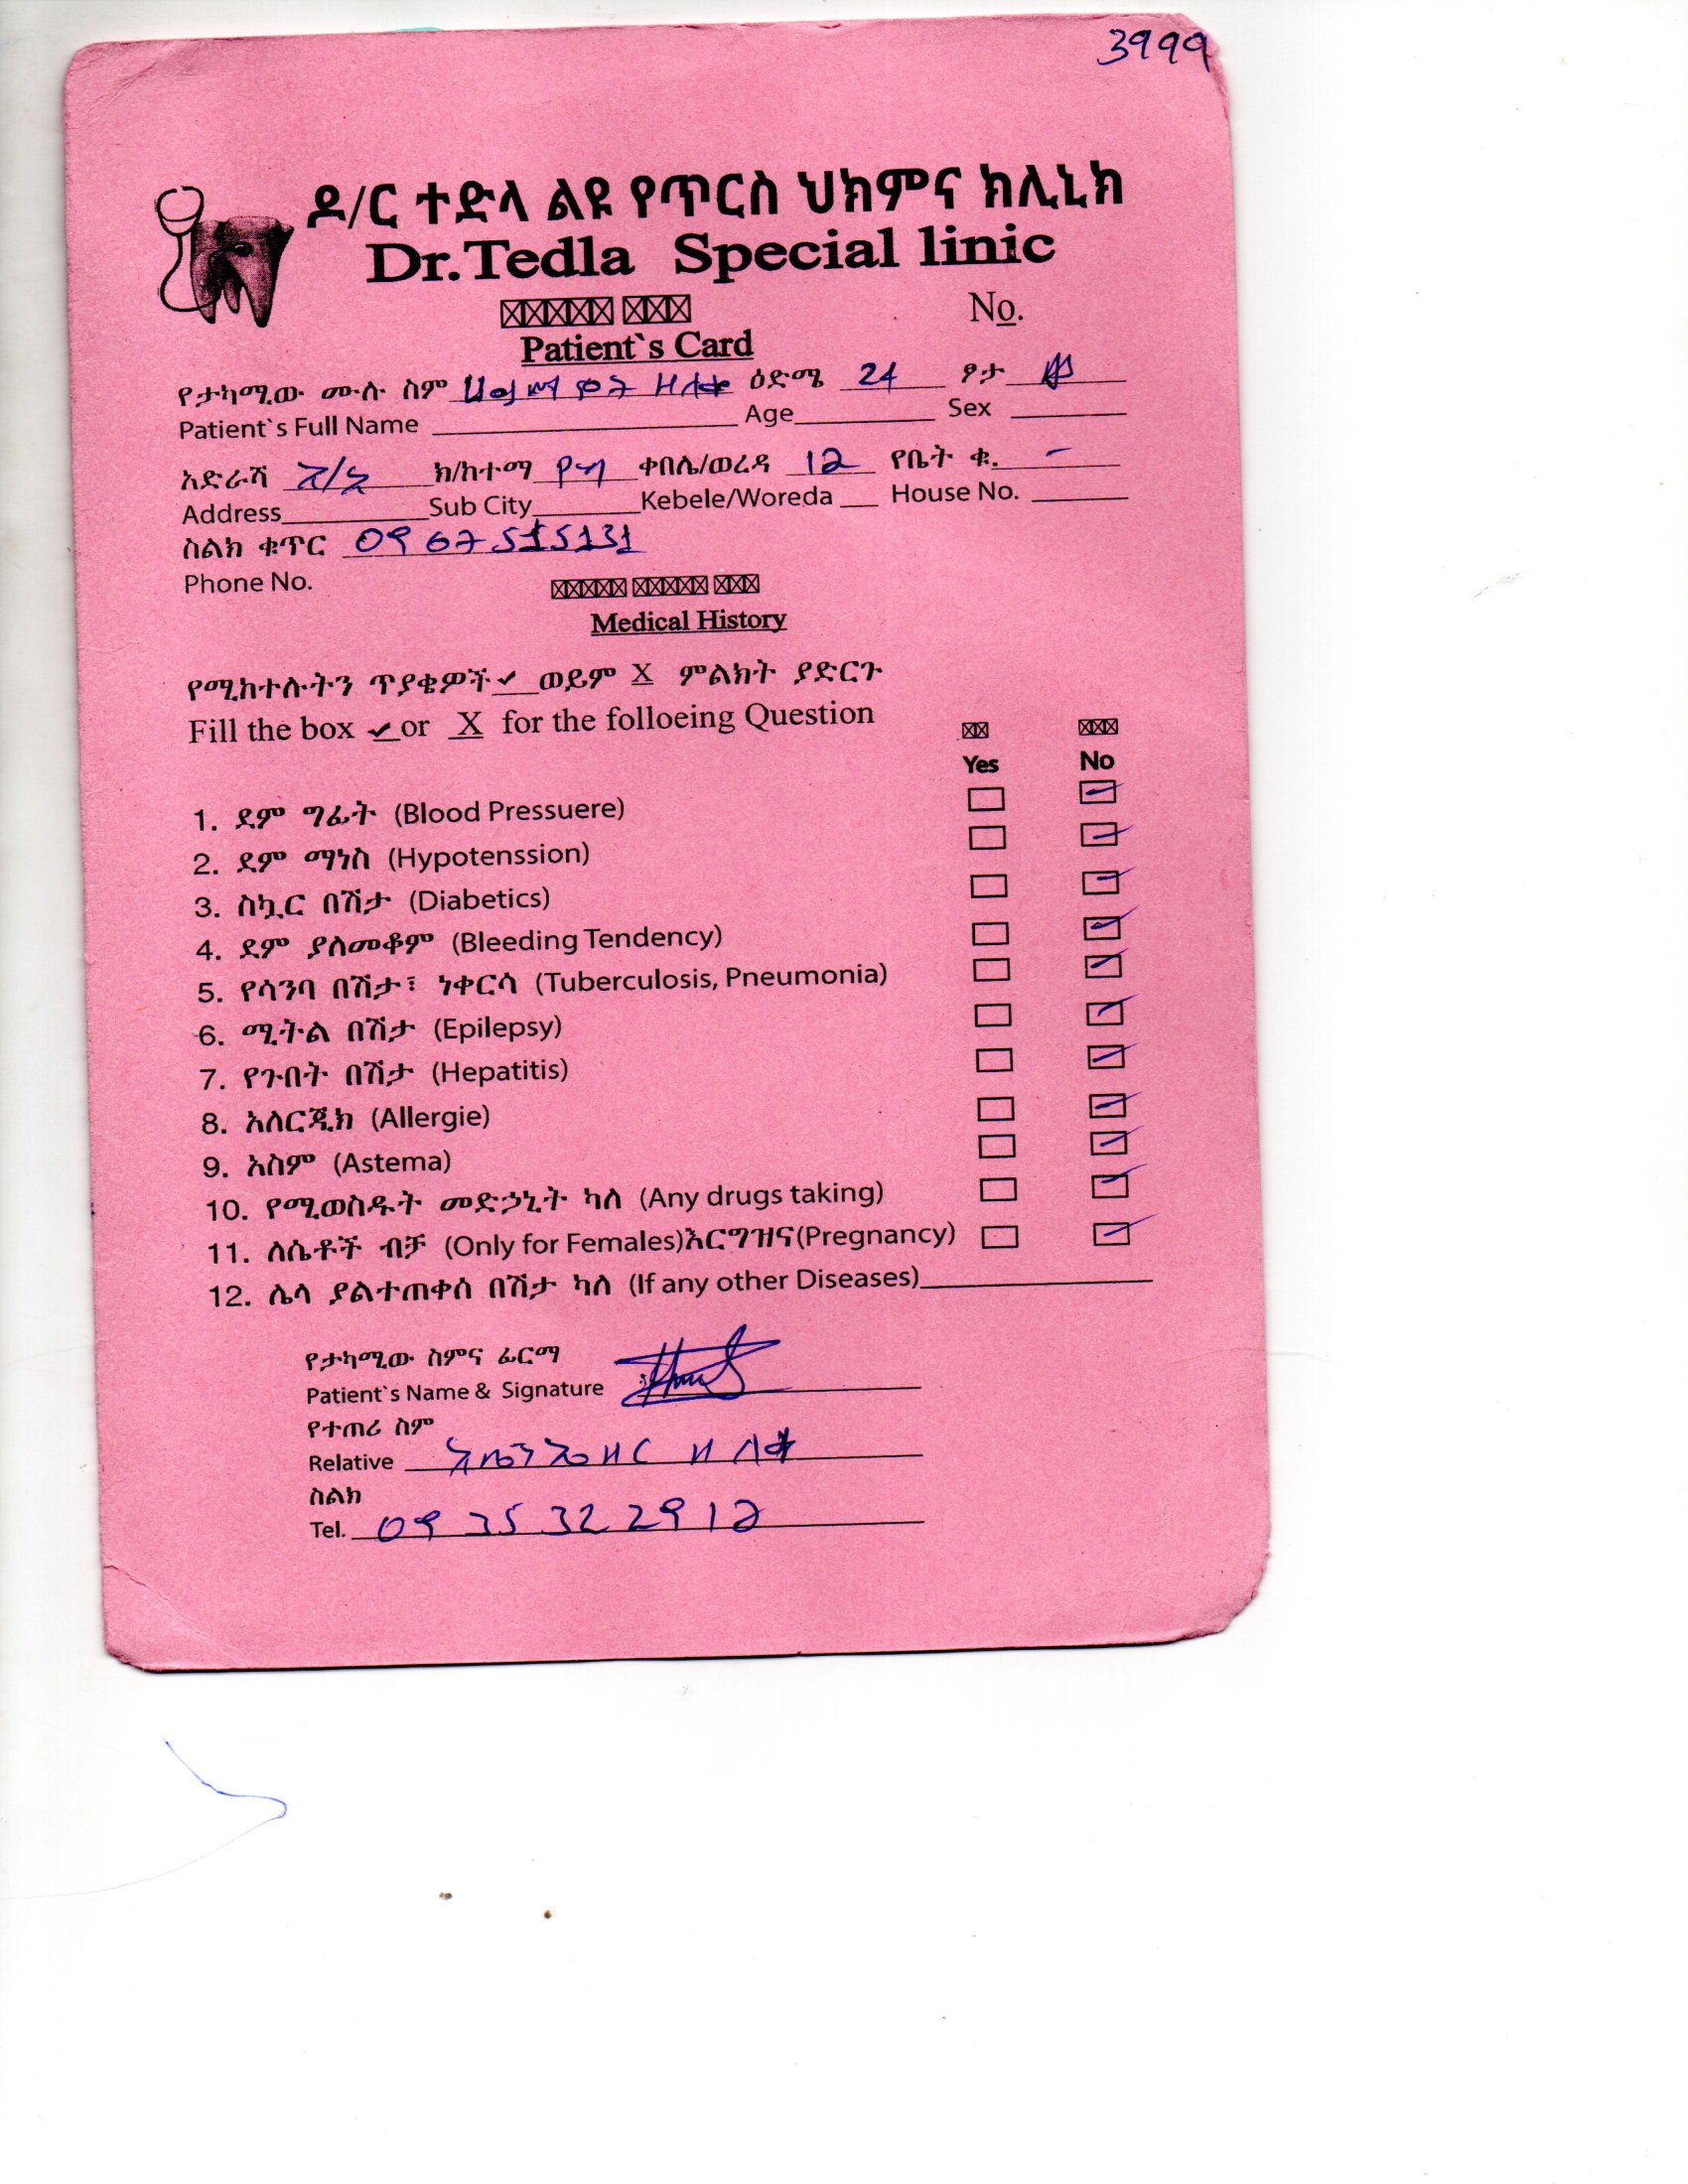 3999
ዶ/ር ተድላ ልዩ የጥርስ ህክምና ክሊኒክ
Dr.Tedla Special linic
No.
Patient`s Card
የታካሚው ሙሉ ስም ዕድሜ 24 ፆታ
Patient`s Full Name Age Sex
አድራሻ አ/አ ክ/ከተማ የካ ቀበሌ/ወረዳ 12 የቤት ቁ. -
Address Sub City Kebele/Woreda House No.
ስልክ ቁጥር 0967515131
Phone No.
Medical History
የሚከተሉትን ጥያቄዎች ✓ ወይም X ምልክት ያድርጉ
Fill the box ✓ or X for the folloeing Question
Yes No
1. ደም ግፊት (Blood Pressuere)
2. ደም ማነስ (Hypotenssion)
3. ስኳር በሽታ (Diabetics)
4. ደም ያለመቆም (Bleeding Tendency)
5. የሳንባ በሽታ፣ ነቀርሳ (Tuberculosis, Pneumonia)
6. ሚትል በሽታ (Epilepsy)
7. የጉበት በሽታ (Hepatitis)
8. አለርጂክ (Allergie)
9. አስም (Astema)
10. የሚወስዱት መድኃኒት ካለ (Any drugs taking)
11. ለሴቶች ብቻ (Only for Females)እርግዝና(Pregnancy)
12. ሌላ ያልተጠቀሰ በሽታ ካለ (If any other Diseases)
የታካሚው ስምና ፊርማ
Patient`s Name & Signature
የተጠሪ ስም
Relative
ስልክ
Tel. 0935322912